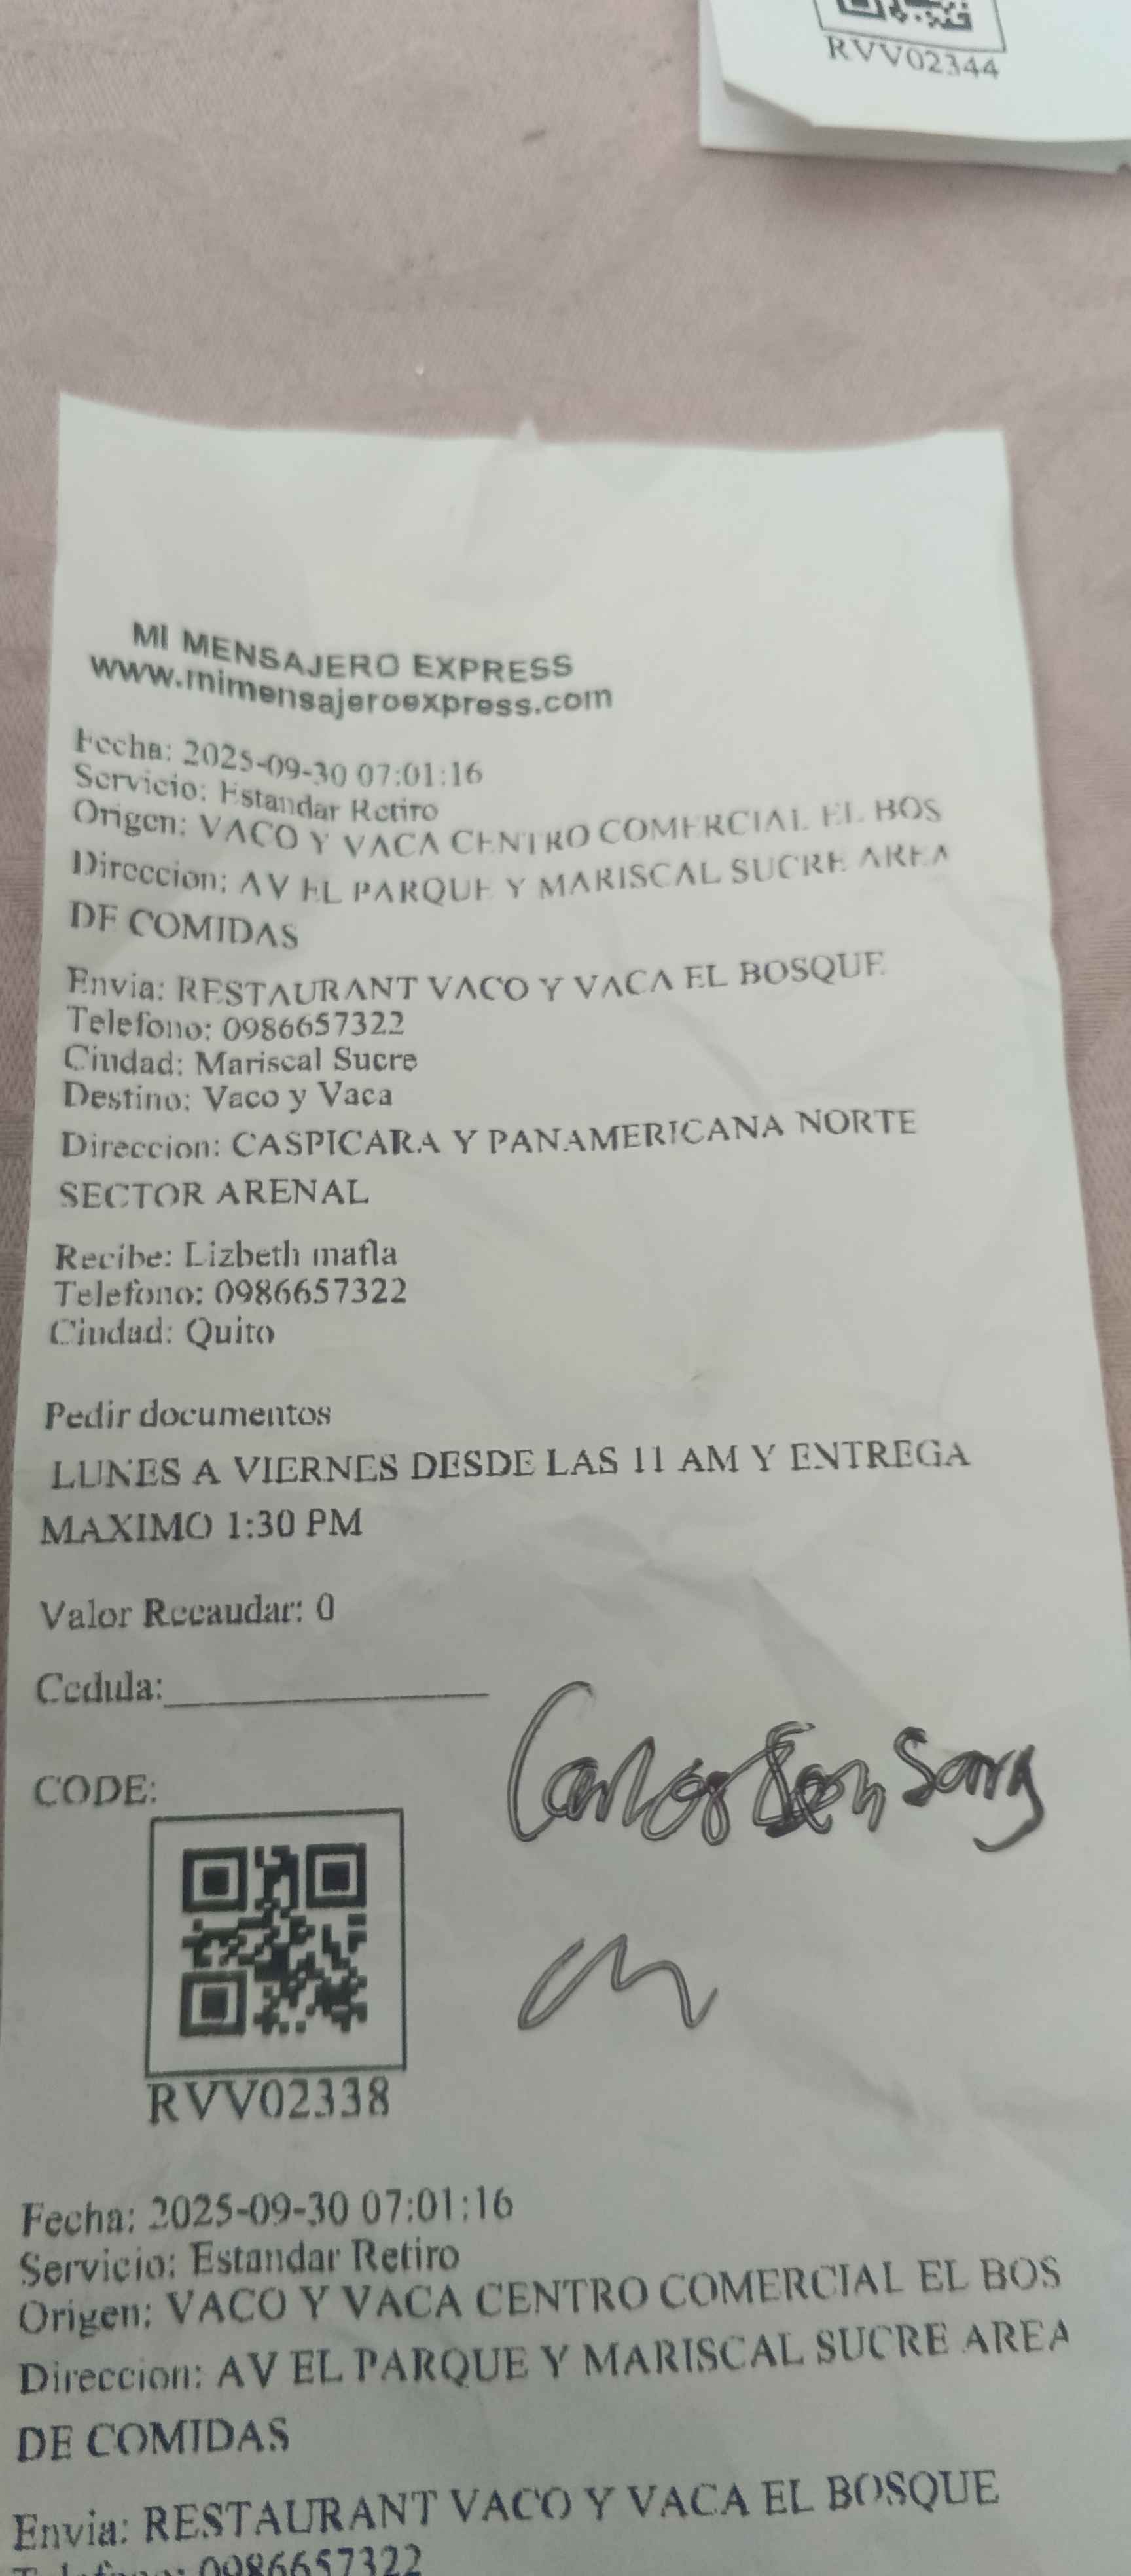 RVV02344
MI MENSAJERO EXPRESS
www.mimensajeroexpress.com
Fecha: 2025-09-30 07:01:16
Servicio: Estandar Retiro
Origen: VACO Y VACA CENTRO COMERCIAL EL BOS
Direccion: AV EL PARQUE Y MARISCAL SUCRE AREA
DE COMIDAS
Envia: RESTAURANT VACO Y VACA EL BOSQUE
Telefono: 0986657322
Ciudad: Mariscal Sucre
Destino: Vaco y Vaca
Direccion: CASPICARA Y PANAMERICANA NORTE
SECTOR ARENAL
Recibe: Lizbeth mafla
Telefono: 0986657322
Ciudad: Quito
Pedir documentos
LUNES A VIERNES DESDE LAS 11 AM Y ENTREGA
MAXIMO 1:30 PM
Valor Recaudar: 0
Cedula:
Carlos
CODE:
RVV02338
Fecha: 2025-09-30 07:01:16
Servicio: Estandar Retiro
Origen: VACO Y VACA CENTRO COMERCIAL EL BOS
Direccion: AV EL PARQUE Y MARISCAL SUCRE AREA
DE COMIDAS
Envia: RESTAURANT VACO Y VACA EL BOSQUE
Telefono: 0986657322